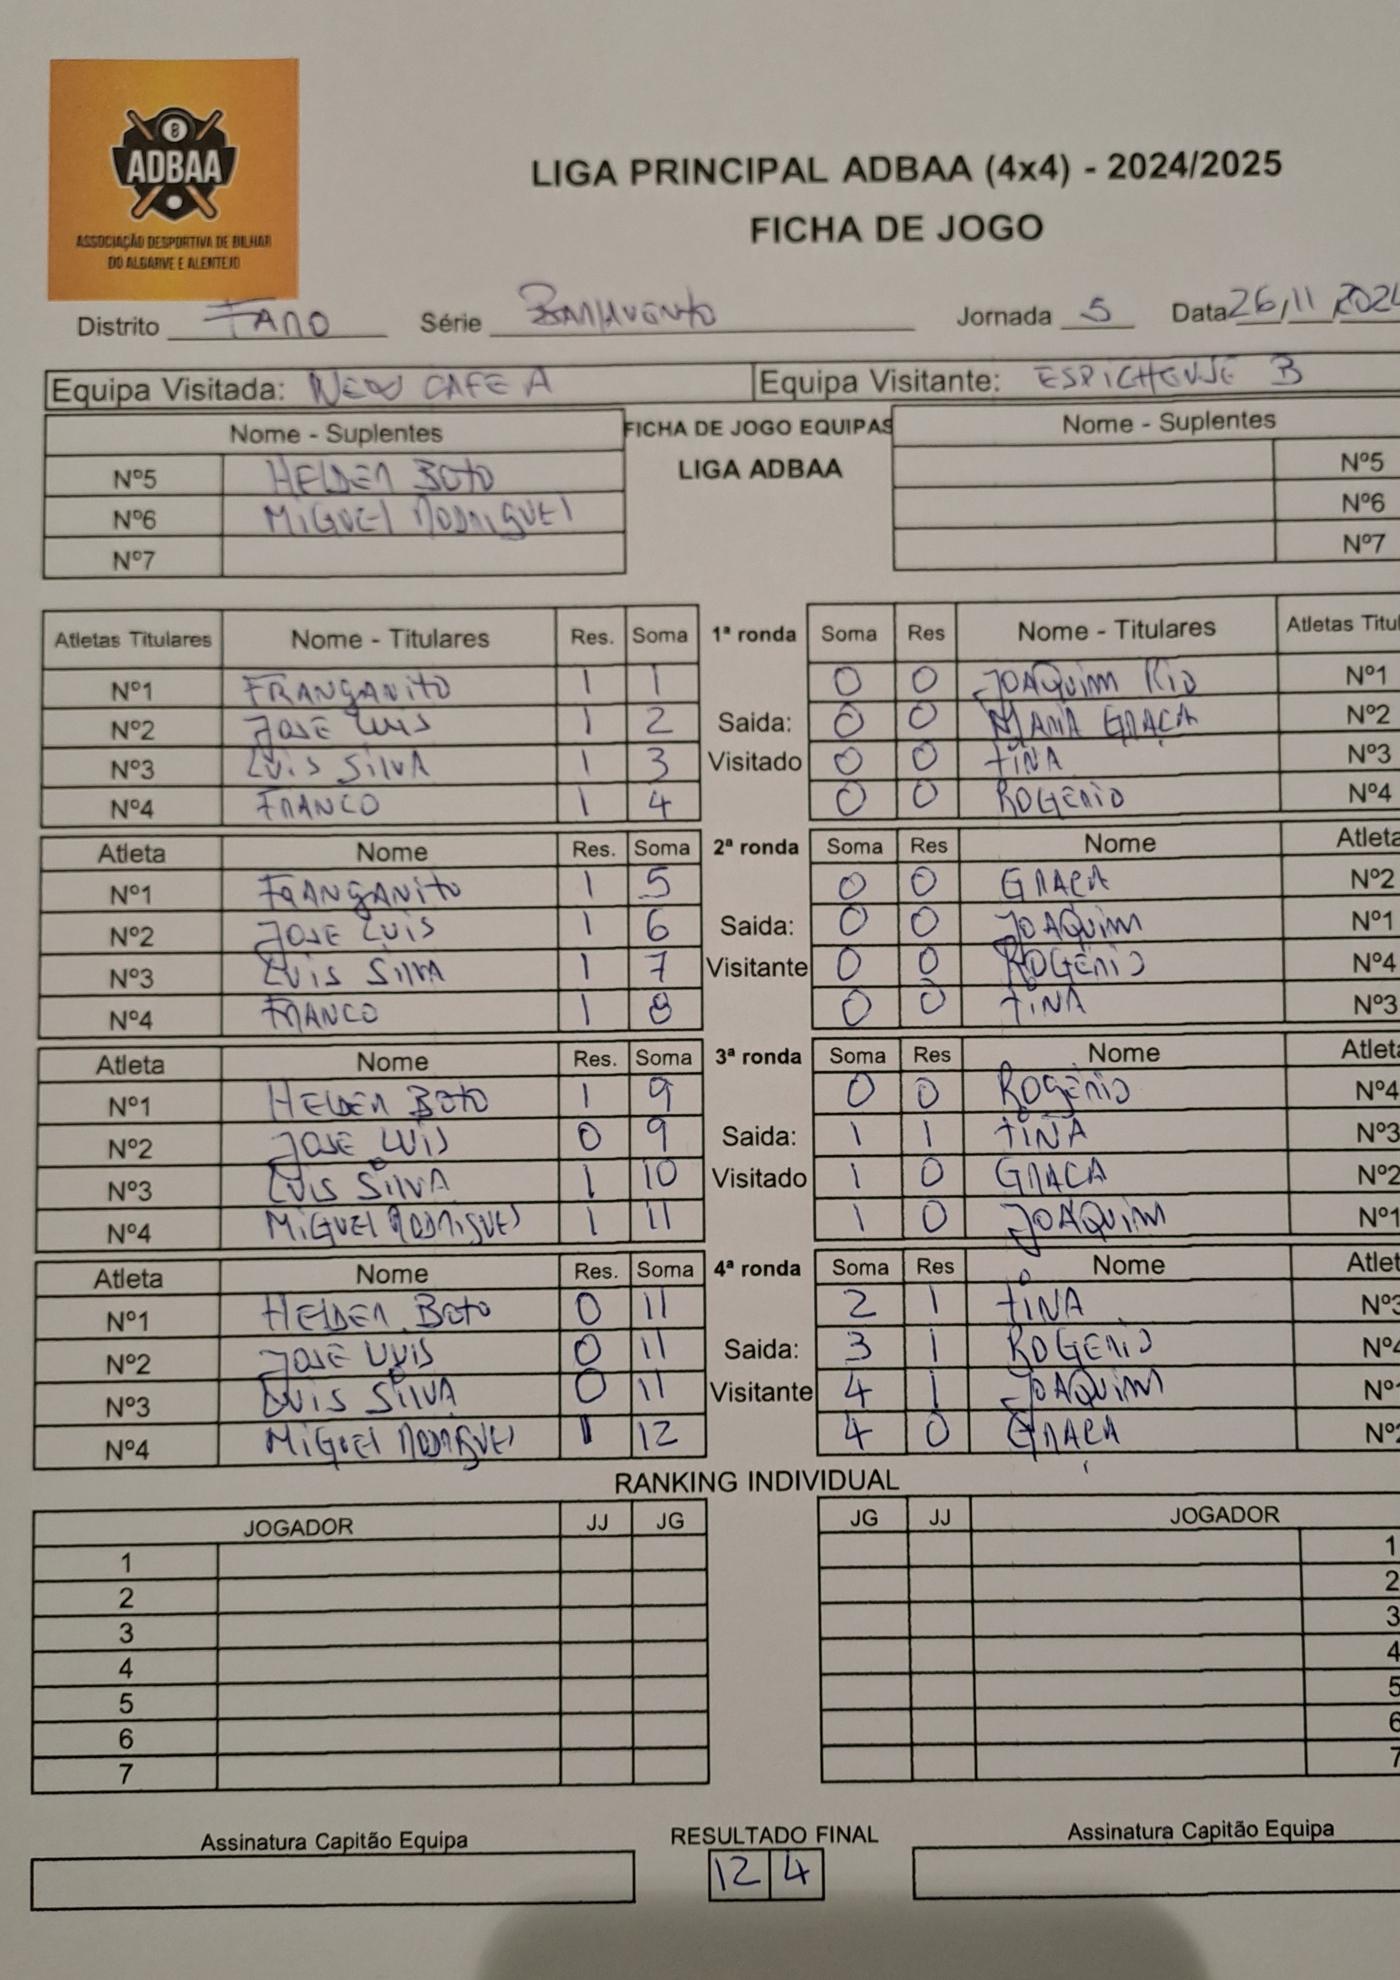 8
ADBAA
ASSOCIAÇÃO DESPORTIVA DE BILHAR
DO ALGARVE E ALENTEJO
LIGA PRINCIPAL ADBAA (4x4) - 2024/2025
FICHA DE JOGO
Distrito FARO Série BARLAVENTO Jornada 5 Data 26/11/2024
Equipa Visitada: NEW CAFE A Equipa Visitante: ESPICHENSE B
Nome - Suplentes FICHA DE JOGO EQUIPAS Nome - Suplentes
LIGA ADBAA
Nº5 HELDER BOTO Nº5
Nº6 MIGUEL RODRIGUES Nº6
Nº7 Nº7
Atletas Titulares Nome - Titulares Res. Soma 1ª ronda Soma Res Nome - Titulares Atletas Titul
Nº1 FRANGANITO 1 1 0 0 JOAQUIM RIO Nº1
Nº2 JOSE LUIS 1 2 Saida: 0 0 MARIA GRAÇA Nº2
Nº3 LUIS SILVA 1 3 Visitado 0 0 TINA Nº3
Nº4 FRANCO 1 4 0 0 ROGERIO Nº4
Atleta Nome Res. Soma 2ª ronda Soma Res Nome Atleta
Nº1 FRANGANITO 1 5 0 0 GRAÇA Nº2
Nº2 JOSE LUIS 1 6 Saida: 0 0 JOAQUIM Nº1
Nº3 LUIS SILVA 1 7 Visitante 0 0 ROGÉRIO Nº4
Nº4 FRANCO 1 8 0 0 TINA Nº3
Atleta Nome Res. Soma 3ª ronda Soma Res Nome Atleta
Nº1 HELDER BOTO 1 9 0 0 ROGÉRIO Nº4
Nº2 JOSE LUIS 0 9 Saida: 1 1 TINA Nº3
Nº3 LUIS SILVA 1 10 Visitado 1 0 GRACA Nº2
Nº4 MIGUEL RODRIGUES 1 11 1 0 JOAQUIM Nº1
Atleta Nome Res. Soma 4ª ronda Soma Res Nome Atlet
Nº1 HELDER BOTO 0 11 2 1 TINA Nº3
Nº2 JOSE LUIS 0 11 Saida: 3 1 ROGERIO Nº4
Nº3 LUIS SILVA 0 11 Visitante 4 1 JOAQUIM Nº1
Nº4 MIGUEL RODRIGUES 1 12 4 0 GRAÇA Nº2
RANKING INDIVIDUAL
JOGADOR JJ JG JG JJ JOGADOR
1 1
2 2
3 3
4 4
5 5
6 6
7 7
Assinatura Capitão Equipa RESULTADO FINAL Assinatura Capitão Equipa
12 4